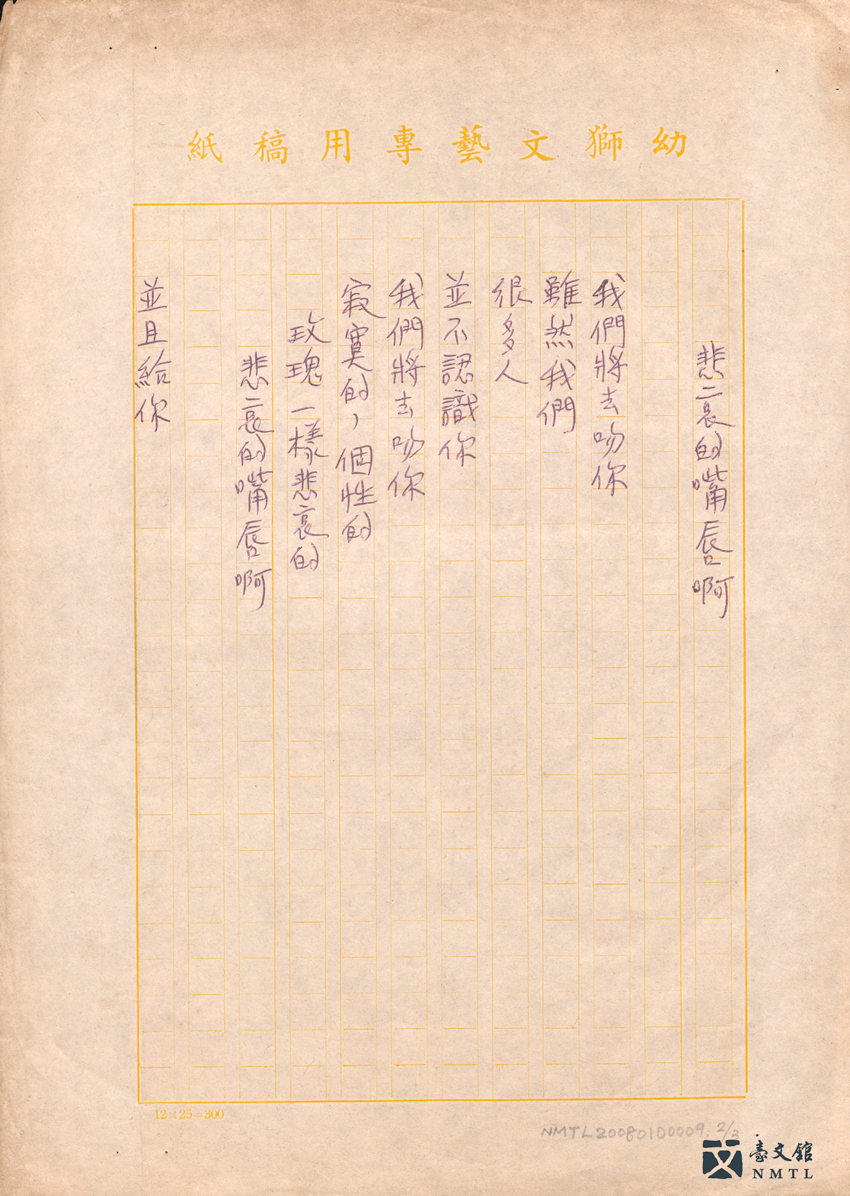 幼獅文藝專用稿紙
悲哀的嘴唇啊
我們將去吻你
雖然我們
很多人
並不認識你
我們將去吻你
寂寞的,個性的
玫瑰一樣悲哀的
悲哀的嘴唇啊
並且給你
12×25=300
NMTL20080100009. 2/3
臺文館
NMTL